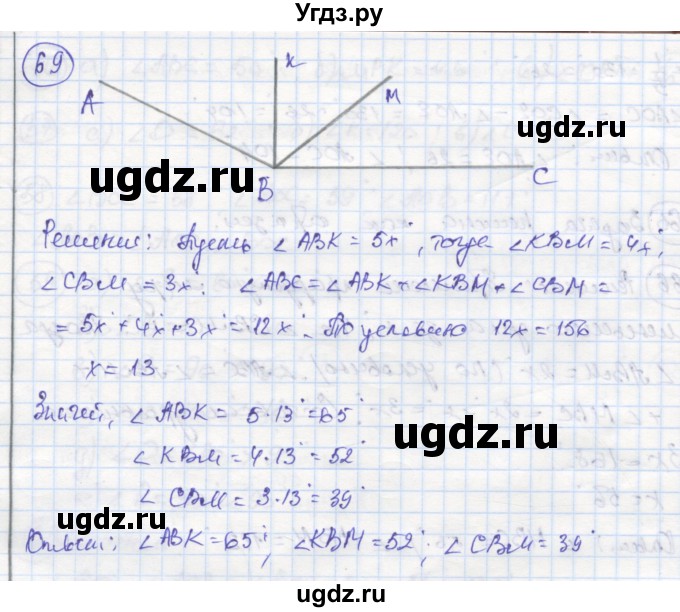 Угдз.ру
69
A
K
M
B
C
ugdz.ru
Решение: Пусть ∠ABK = 5x°, тогда ∠KBM = 4x°,
∠CBM = 3x°. ∠ABC = ∠ABK + ∠KBM + ∠CBM =
= 5x° + 4x° + 3x° = 12x°. По условию 12x = 156
x = 13.
ugdz.ru
Значит, ∠ABK = 5·13° = 65°
∠KBM = 4·13° = 52°
∠CBM = 3·13° = 39°
ugdz.ru
Ответ: ∠ABK = 65°; ∠KBM = 52°; ∠CBM = 39°
ugdz.ru
Угдз.ру